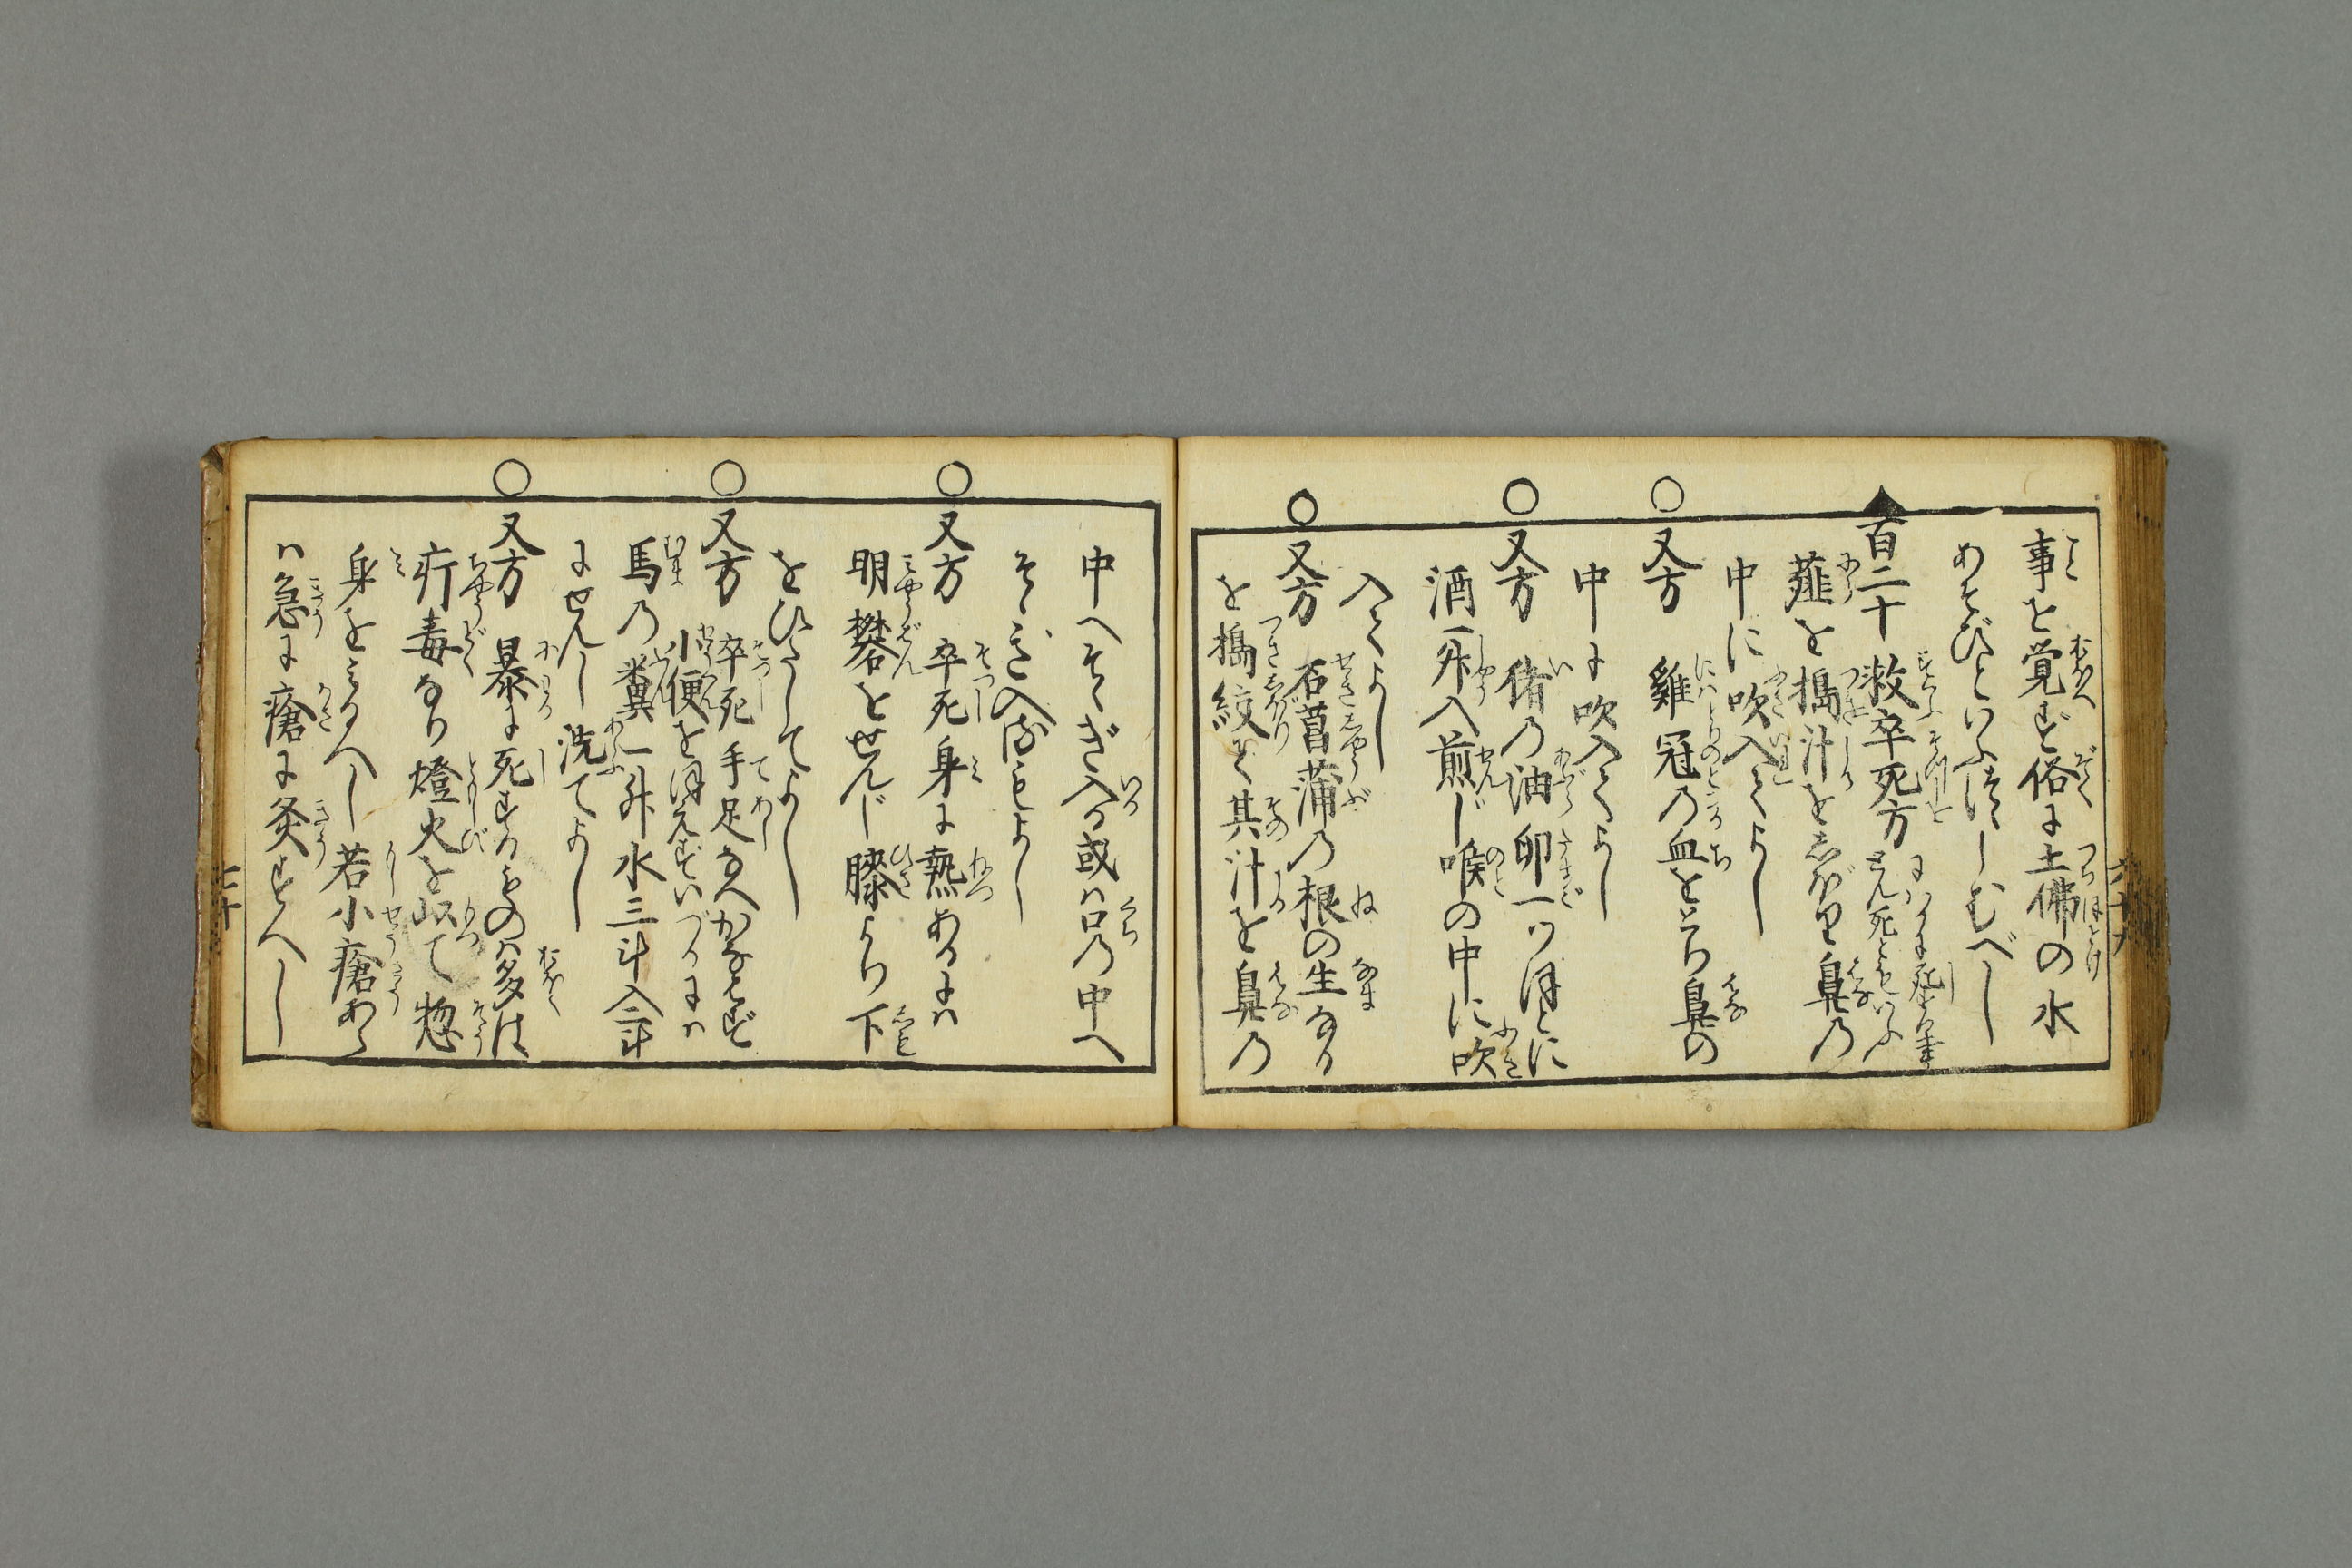 事を覚ず俗に土佛の水
あそびといふ浅しむべし
百二十 救卒死方 にはかに死たる事さん死ともいふ
薤を搗汁をしぼり鼻の
中に吹入てよし
又方 雞冠の血をとり鼻の
中に吹入てよし
又方 猪の油卵一ツほどに
酒一升入煎じ喉の中に吹
入てよし
又方 石菖蒲の根の生なる
を搗絞て其汁を鼻の
六十九
中へそゝぎ入る或ハ口の中へ
そゝぎ入るもよし
又方 卒死身に熱あるにハ
明礬をせんじ膝より下
をひたしてよし
又方 卒死手足なへかなはず
小便をほえずいづるにハ
馬の糞一升水三斗入二斗
にせんし洗てよし
又方 暴に死するものハ多は
疔毒なり燈火を以て惣
身をみるへし若小瘡あら
ハ急に瘡に灸すへし
七十